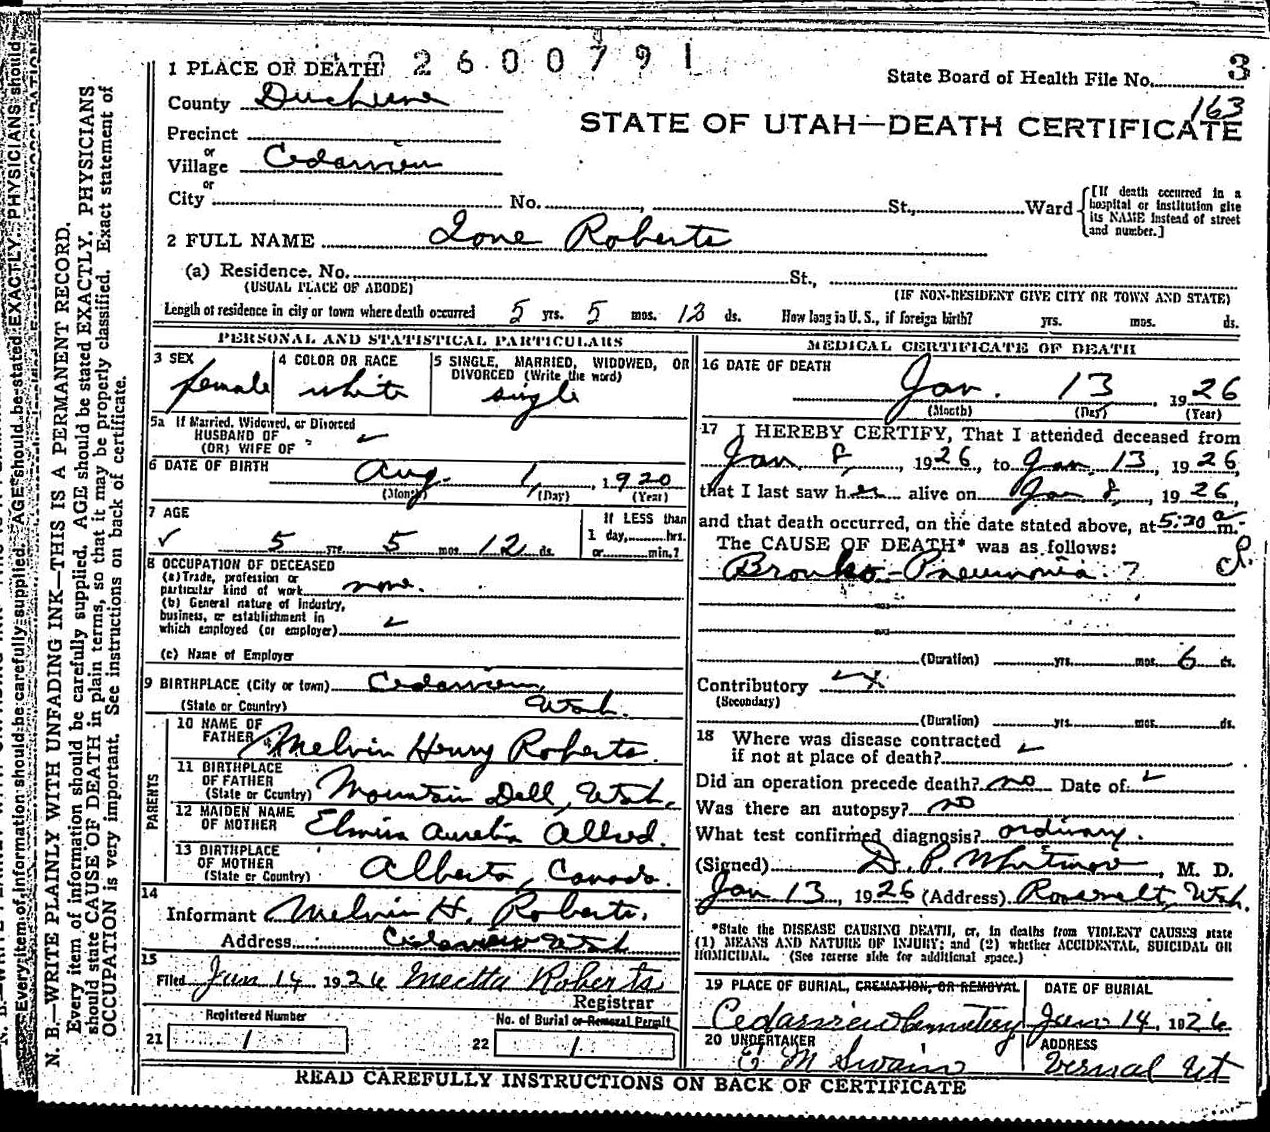 2600791
1 PLACE OF DEATH
State Board of Health File No. 3
County Duchesne
163
STATE OF UTAH—DEATH CERTIFICATE
Precinct
or
Village Cedarview
or
City No. , St., Ward
[If death occurred in a hospital or institution give its NAME instead of street and number.]
2 FULL NAME Ione Roberts
(a) Residence. No. St.,
(USUAL PLACE OF ABODE) (IF NON-RESIDENT GIVE CITY OR TOWN AND STATE)
Length of residence in city or town where death occurred 5 yrs. 5 mos. 12 ds. How long in U. S., if foreign birth? yrs. mos. ds.
PERSONAL AND STATISTICAL PARTICULARS
3 SEX female
4 COLOR OR RACE white
5 SINGLE, MARRIED, WIDOWED, OR
DIVORCED (Write the word)
single
5a If Married, Widowed, or Divorced
HUSBAND OF
(OR) WIFE OF
6 DATE OF BIRTH Aug. 1, 1920
(Month) (Day) (Year)
7 AGE
5 yrs. 5 mos. 12 ds.
If LESS than
1 day, hrs.
or min.?
8 OCCUPATION OF DECEASED
(a) Trade, profession or
particular kind of work none.
(b) General nature of Industry,
business, or establishment in
which employed (or employer)
(c) Name of Employer
9 BIRTHPLACE (City or town) Cedarview,
(State or Country) Utah.
PARENTS
10 NAME OF
FATHER Melvin Henry Roberts.
11 BIRTHPLACE
OF FATHER
(State or Country) Mountain Dell, Utah.
12 MAIDEN NAME
OF MOTHER Elmira Aurelia Allred.
13 BIRTHPLACE
OF MOTHER
(State or Country) Alberta, Canada.
14
Informant Melvin H. Roberts.
Address Cedarview Utah
15
Filed Jan 14 1926 Meetta Roberts
Registrar
Registered Number
21 1
No. of Burial or Removal Permit
22 1
MEDICAL CERTIFICATE OF DEATH
16 DATE OF DEATH
Jan. 13 1926
(Month) (Day) (Year)
17 I HEREBY CERTIFY, That I attended deceased from
Jan 8, 1926, to Jan 13, 1926,
that I last saw her alive on Jan 8, 1926,
and that death occurred, on the date stated above, at 5:30 a m.
The CAUSE OF DEATH* was as follows:
Bronko-Pneumonia. ?
(Duration) yrs. mos. 6 ds.
Contributory
(Secondary)
(Duration) yrs. mos. ds.
18 Where was disease contracted
if not at place of death?
Did an operation precede death? no Date of
Was there an autopsy? no
What test confirmed diagnosis? ordinary.
(Signed) D. P. Whitmore, M. D.
Jan 13, 1926 (Address) Roosevelt, Utah.
*State the DISEASE CAUSING DEATH, or, in deaths from VIOLENT CAUSES state
(1) MEANS AND NATURE OF INJURY; and (2) whether ACCIDENTAL, SUICIDAL OR
HOMICIDAL. (See reverse side for additional space.)
19 PLACE OF BURIAL, CREMATION, OR REMOVAL
Cedarview Cemetery
DATE OF BURIAL
Jan 14, 1926
20 UNDERTAKER
E M Swain
ADDRESS
Vernal Ut
READ CAREFULLY INSTRUCTIONS ON BACK OF CERTIFICATE
N. B.—WRITE PLAINLY WITH UNFADING INK—THIS IS A PERMANENT RECORD.
Every item of information should be carefully supplied. AGE should be stated EXACTLY. PHYSICIANS
should state CAUSE OF DEATH in plain terms, so that it may be properly classified. Exact statement of
OCCUPATION is very important. See instructions on back of certificate.